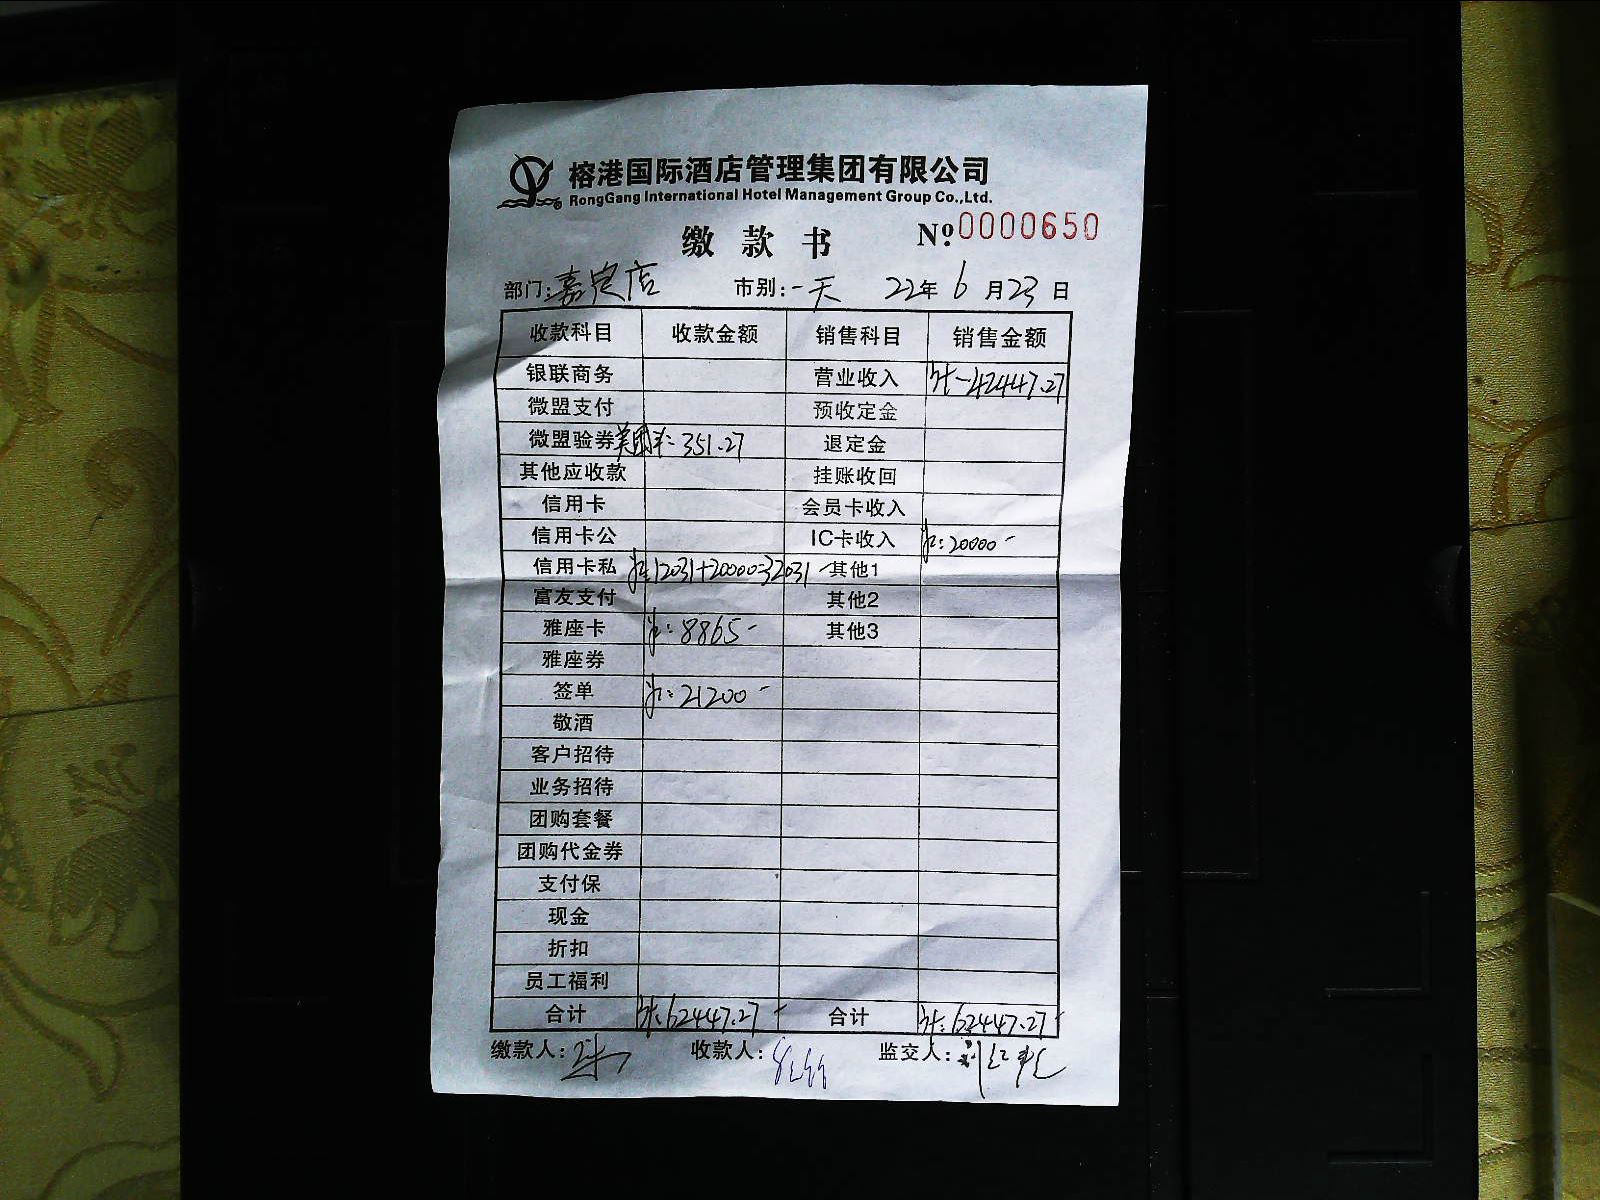 榕港国际酒店管理集团有限公司
RongGang International Hotel Management Group Co.,Ltd.
缴款书 Nº 0000650
部门:嘉定店 市别:一天 22年6月23日
收款科目 收款金额 销售科目 销售金额
银联商务 营业收入 42447.27
微盟支付 预收定金
微盟验券 美团 351.27 退定金
其他应收款 挂账收回
信用卡 会员卡收入
信用卡公 IC卡收入 20000-
信用卡私 12031+20000 32031 其他1
富友支付 其他2
雅座卡 8865- 其他3
雅座券
签单 21200-
敬酒
客户招待
业务招待
团购套餐
团购代金券
支付保
现金
折扣
员工福利
合计 62447.27 合计 62447.27
缴款人: 收款人: 监交人: